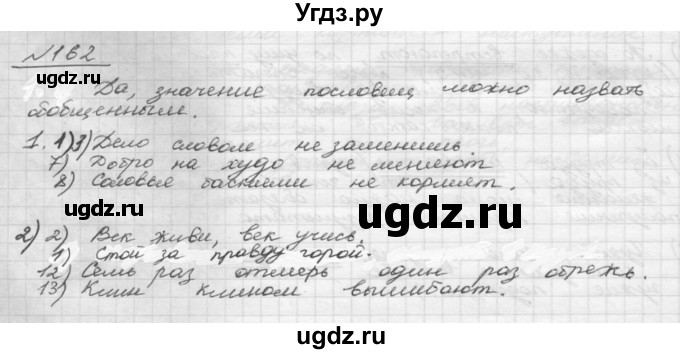 Угдз.ру
№162
ugdz.ru
Да, значение пословиц можно назвать
обобщенным.
ugdz.ru
1. 1) 3) Дело словом не заменишь.
7) Добро на худо не меняют
8) Соловья баснями не кормят.
ugdz.ru
ugdz.ru
2) 2) Век живи, век учись.
1) Стой за правду горой.
12) Семь раз отмерь один раз обрежь.
13) Клин клином вышибают.
ugdz.ru
ugdz.ru